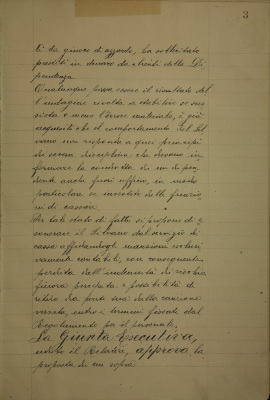 3
ti da giuoco di azzardo, ha sollecitato
prestiti in denaro da clienti della Di
pendenza.
Qualunque possa essere il risultato del
l'indagine rivolta a stabilire se sus
sista o meno l'errore materiale, è già
acquisito che il comportamento del Sil
vano non risponde a quei principi
di severa disciplina, che devono in
formare la condotta di un dipen
dente anche fuori ufficio, in modo
particolare se investito delle funzio
ni di cassiere.
Per tale stato di fatto si propone di e
sonerare il Silvano dal servizio di
cassa affidandogli mansioni esclusi
vamente contabili, con conseguente
perdita dell'indennità di rischio
finora percepita e possibilità di
ritiro da parte sua della cauzione
versata, entro i termini fissati dal
Regolamento per il personale.
La Giunta Esecutiva,
udito il Relatore, approva la
proposta di cui sopra